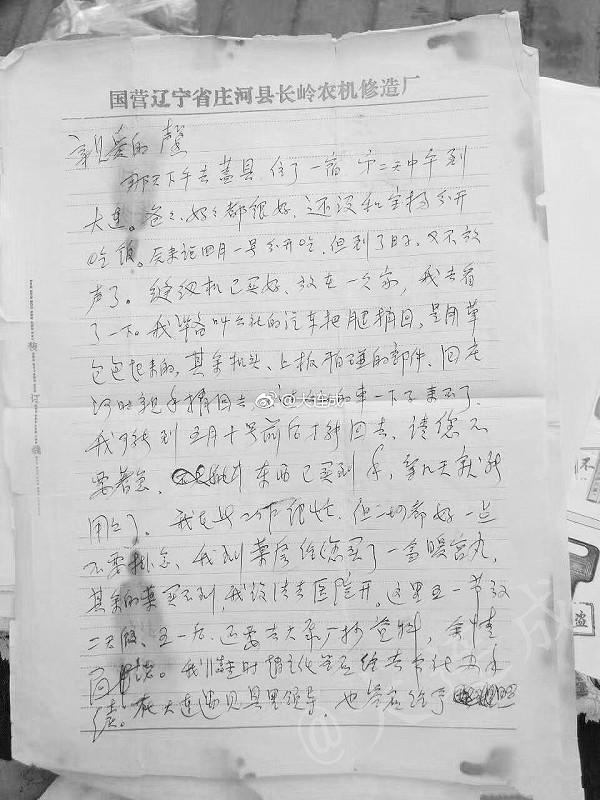 国营辽宁省庄河县长岭农机修造厂
亲爱的
那天下午去盖县,住了一宿,第二天中午到
大连。爸爸、妈妈都很好,还没和宝扬分开
吃饭。原来说四月一号分开吃,但到了日子,又不放
声了。缝纫机已买好,放在一久家,我去看
了一下。我准备叫公社的汽车把腿捎回,是用草
包包起来的,其余机头、上板怕碰的部件,回庄
河时亲手捎回去,的车一下子来不了
我可能到五月十号前后才能回去,请您不
要着急,东西已买到手,拿几天就能
用上了。我在此工作很忙,但一切都好一点
不要挂念,我到药房给您买了一盒暖宫丸,
其余的药买不到,我设法去医院开。这里五一节放
二天假,五一后,还要去大
面。我
续。在大连遇见县里领导,也答应给予
@大连成